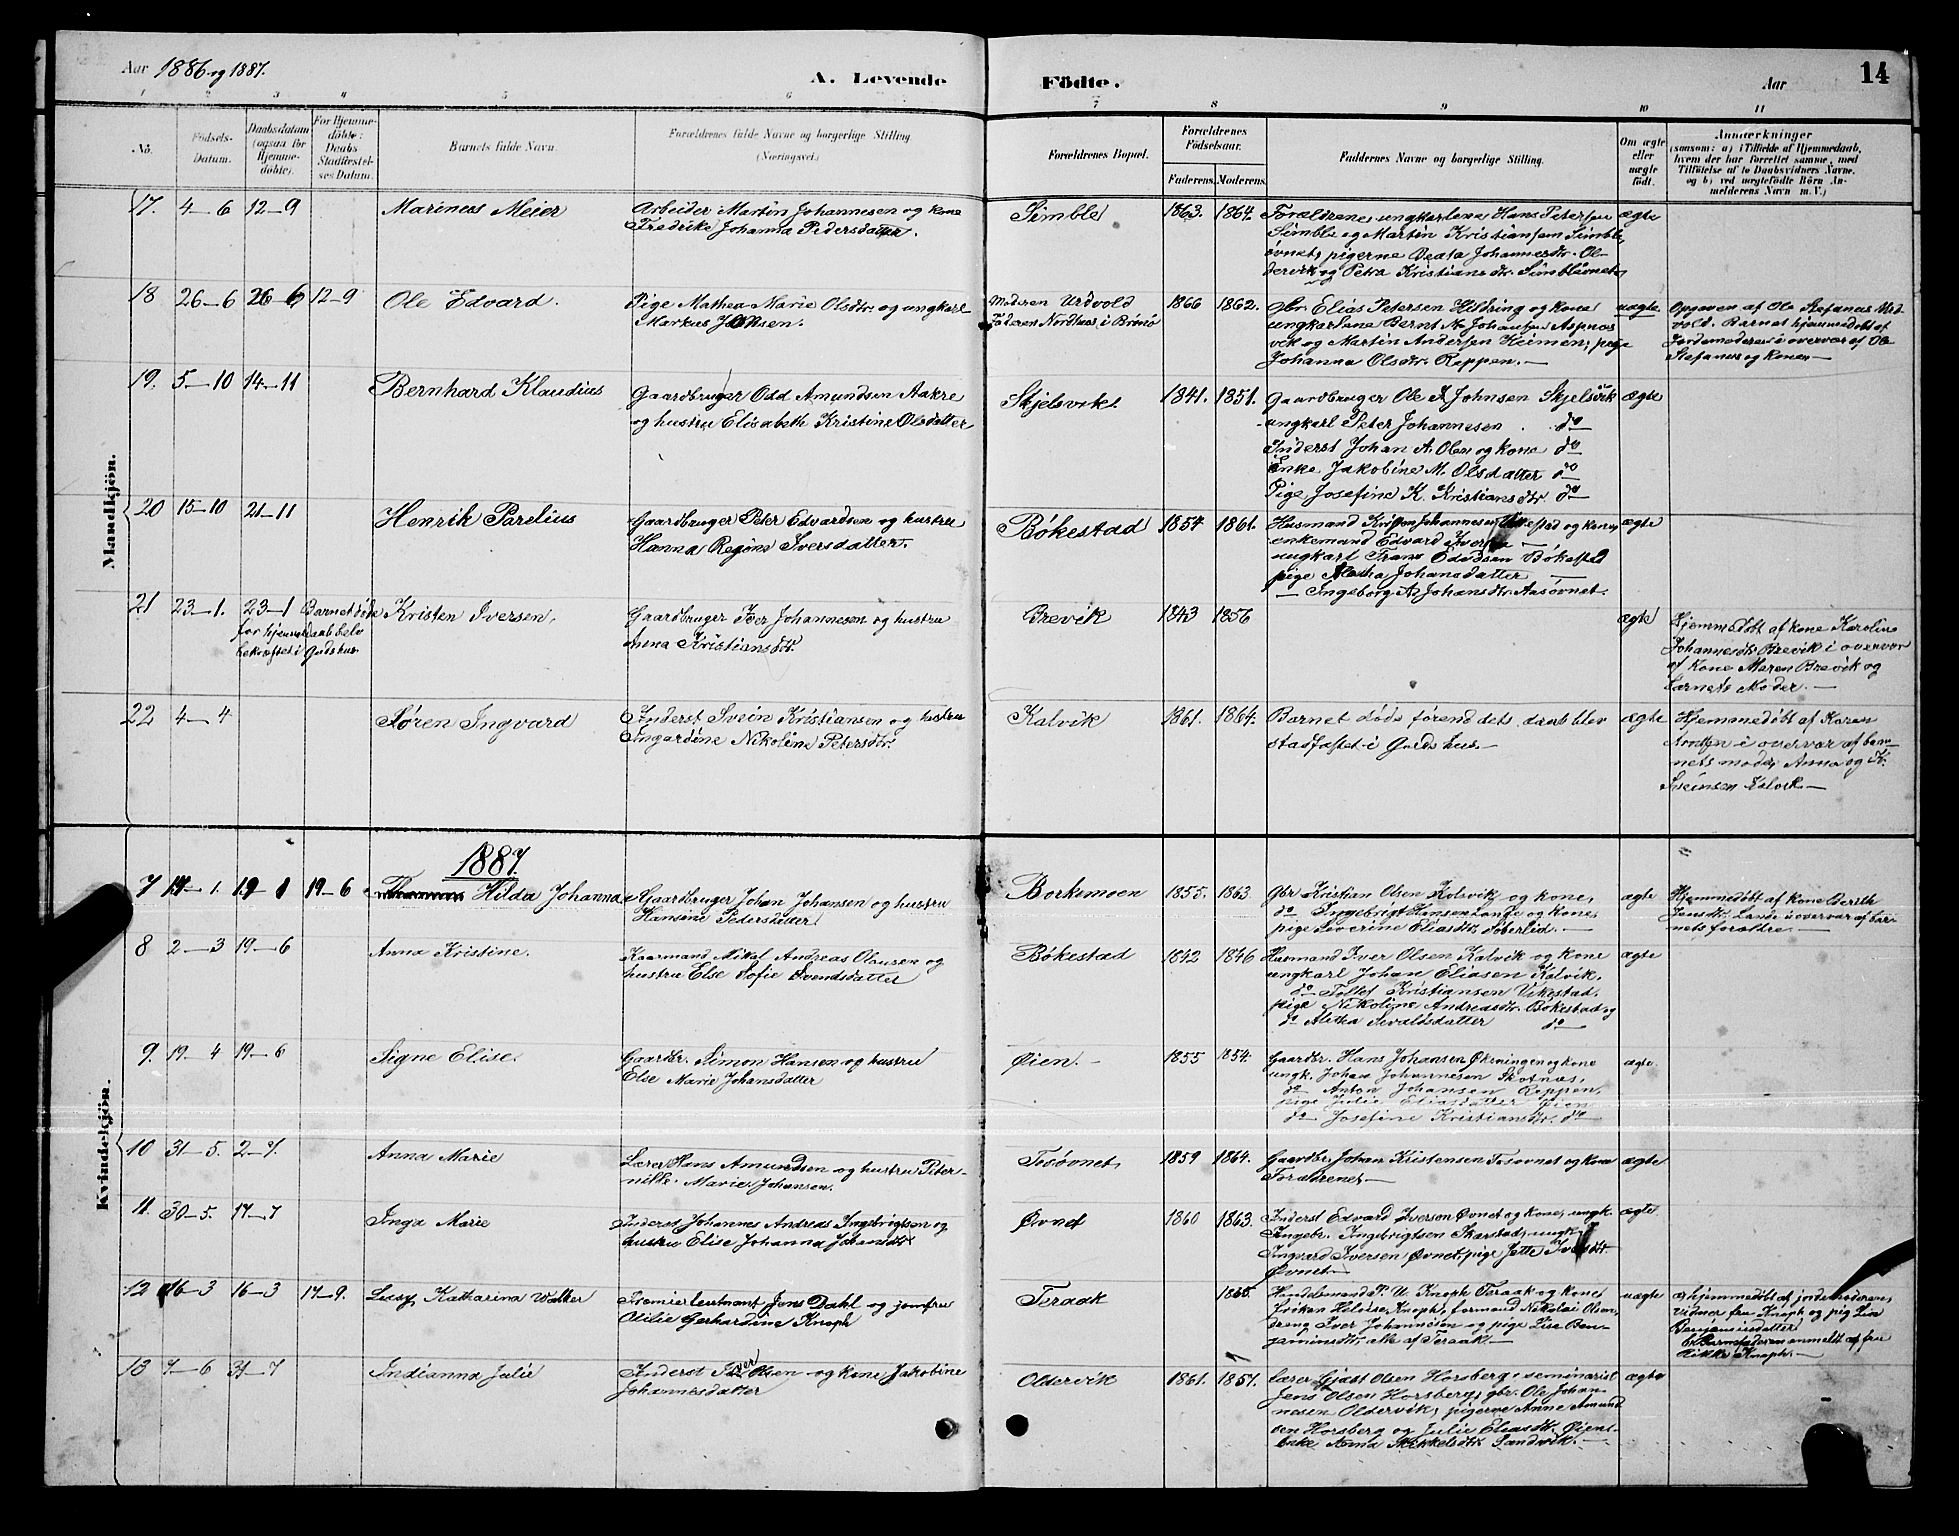 Aar 1886 og 1887.
A. Levende
Födte.
Aar
14
1 2 3 4 5 6 7 8 9 10 11
No.
Födsels-
Datum.
Daabsdatum
(ogsaa for
Hjemme-
döbte).
For Hjemme-
döbte:
Daabs
Stadfæstel-
ses Datum.
Barnets fulde Navn.
Forældrenes fulde Navne og borgerlige Stilling
(Næringsvei.)
Forældrenes Bopæl.
Forældrenes
Födselsaar.
Faderens. Moderens.
Faddernes Navne og borgerlige Stilling.
Om ægte
eller
uægte
födt.
Anmærkninger
(saasom: a) i Tilfælde af Hjemmedaab,
hvem der har forrettet samme, med
Tilföielse af to Daabsvidners Navne.
og b) ved uægtefödte Börn An-
melderens Navn m. V.)
Mandkjön.
17. 4–6 12–9
Marineos Meier
Arbeider Martin Johannesen og kone
Fredrike Johanna Pedersdatter.
Simble
1863. 1864.
Forældrene, ungkarlene Hans Petersen
Simble og Martin Kristiansen Simble,
øvnet, pigerne Beata Johannesdr. Ol-
dervik og Petra Kristiansdr. Simbløvnet
ægte
18 26–6 26–6 12–9
Ole Edvard.
Pige Mathea Marie Olsdtr. og ungkarl
Markus Johnsen.
Moderen Urdvold
Faderen Nordhus, i Brønø
1866 1862.
Gbr. Elias Petersen Hildring og kone
ungkarlene Bernt A. Johansen Aspnes
vik og Martin Andersen Heimen, pige
Johanna Olsdtr. Reppen.–
uægte
Opgiven af Ole Stefanus Urd
vold. Barnet hjemmedøbt af
Jordemoderen i overvær af Ole
Stefanus og kone.–
19. 5–10 14–11
Bernhard Klaudius
Gaardbruger Odd Amundsen Aakre
og hustru Elisabeth Kristine Olsdatter
Skjelsvik.
1841. 1851.
Gaardbruger Ole A Johnsen Skjelsvik
ungkarl Peter Johannesen do
Inderst Johan A. Olsen og kone do
Enke Jakobine M. Olsdatter do
Pige Josefine K. Kristiansdtr. do
ægte
20 15–10 21–11
Henrik Parelius
Gaardbruger Peter Edvardsen og hustru
Hanna Regine Iversdatter.
Bökestad
1854 1861.
Husmand Johannesen og kone,
enkemand Edvard Iversen –
ungkarl Frans Edvdsen Bökestad
pige Aletha Johansdatter –
– Ingeborg A. Johansdtr. Aasövnet.
ægte
21 23–1. 23–1 Barnet døde
for hjemmedaab blev
bekræftet i Guds hus
Kristen Iversen,
Gaardbruger Iver Johannesen og hustru
Anna Kristiansdtr.
Brevik
1843 1856
ægte
Hjemmedöbt af kone Karoline
Johannesdtr. Brevik i overvær
af Kone Maren Brevik og
barnets Moder.–
22 4–4
Søren Ingvard
Inderst Svein Kristiansen og hustru
Ingardine Nikoline Petersdtr.
Kalvik
1861. 1864.
Barnet døde førend dets daab blev
stadfæstet i Guds hus.–
ægte
Hjemmedöbt af Karen
Arntsen i overvær af bar-
nets moder, Anna og K.
Sveinsen Kalvik.–
Kvindekjön.
1887.
7 19–1. 19–1 19–6
Hilda Johanna
Gaardbruger Johan Johansen og hustru
Hansine Pedersdatter
Borkmoen
1855. 1863
Gbr Kristian Olsen Kalvik og kone,
do Ingebrigt Hansen Lande og kone,
pige Severine Eliasdtr. Sæterlid.–
ægte
Hjemmedöbt af kone Berith
Jensdtr. Lande i overvær af bar-
nets forældre.–
8 2–3 19–6
Anna Kristine.
Kaarmand Mikal Andreas Olausen og
hustru Else Sofie Svendsdatter
Bökestad
1842 1846
Husmand Iver Olsen Kalvik og kone
ungkarl Johan Eliasen Kalvik,
do Tollef Kristiansen Vikestad,
pige Nikoline Andreasdtr. Bökestad og
do Aletha Sivaldsdatter do
ægte
9. 19–4 19–6
Signe Elise.
Gaardbr. Simon Hansen og hustru
Else Marie Johansdatter
Øien.–
1855 1854.
Gaardbr. Hans Johansen Økeningen og kone
ungk. Johan Johannesen Skotnæs,
do Anton Johansen Reppen,
pige Julie Eliasdatter Øien
do Josefine Kristiansdtr. do
ægte.
10 31–5. 2–7.
Anna Marie
Lærer Hans Amundsen og hustru Peter-
nille Marie Johansen.
Tosövnet,
1859 1864.
Gaardbr. Johan Kristensen Tosövnet og kone
Forældrene.–
ægte
11. 30–5. 17–7
Inga Marie
Inderst Johannes Andreas Ingebrigtsen og
hustru Elise Johanna Johansdtr
Øvnet
1860 1863.
Inderst Edvard Iversen Øvnet og kone, ungk.
Ingebr. Ingebrigtsen Skarstad, ungk.
Ingvard Iversen, Øvnet, pige Jette Iversdtr
Øvnet.–
ægte.
12 16–3 16–3 17–9.
Lusy Katharina Walter
Premierleutnant Jens Dahl og jomfru
Otilie Gerhardine Knoph
Teraak
1865.
Handelsmand P. U. Knoph Teraak og kone
Heloise Knoph, formand Nikolai Olsen,
dreng Iver Johannesen og pige Lise Ben-
jaminsdtr. alle af Teraak.–
uægte
a) hjemmedöbt af jordemoderen,
Vidner fru Knoph og pig Lise
Benjaminsdatter
b) Barnefaderen anmeldt af fru
Knoph.–
13 7–6 31–7
Indianna Julie
Inderst Iver Olsen og kone Jakobine
Johannesdatter
Oldervik
1861. 1857.
Lærer Olsen Horsberg, seminarist
Jens Olsen Horsberg, gbr. Ole Johan-
nesen Oldervik, pigerne Anne Amund
sen Horsberg og Julie Eliasdtr. Øien,
Enke Anna Mikkelsdtr. Sandvik.–
ægte